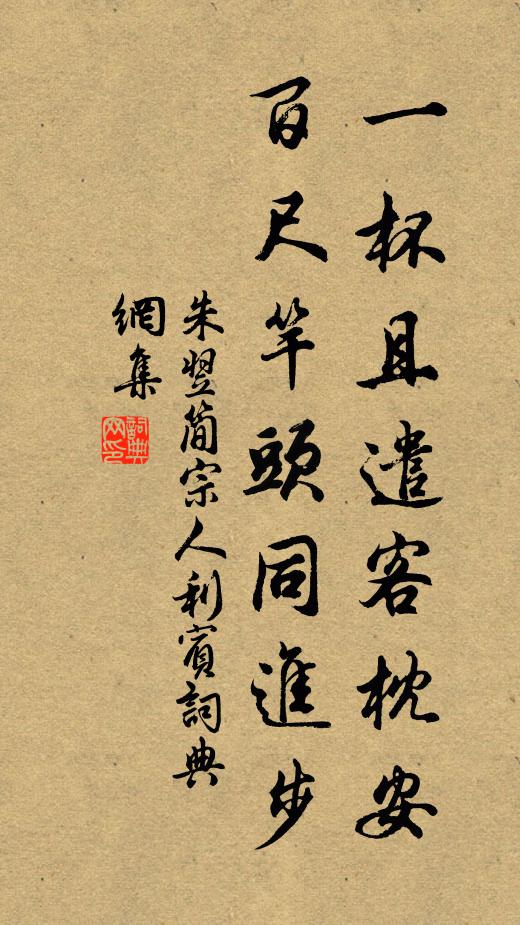 一杯且遣客枕安
百尺竿頭同進步
朱翌簡宗人利賓詞典
網集
詞典網印